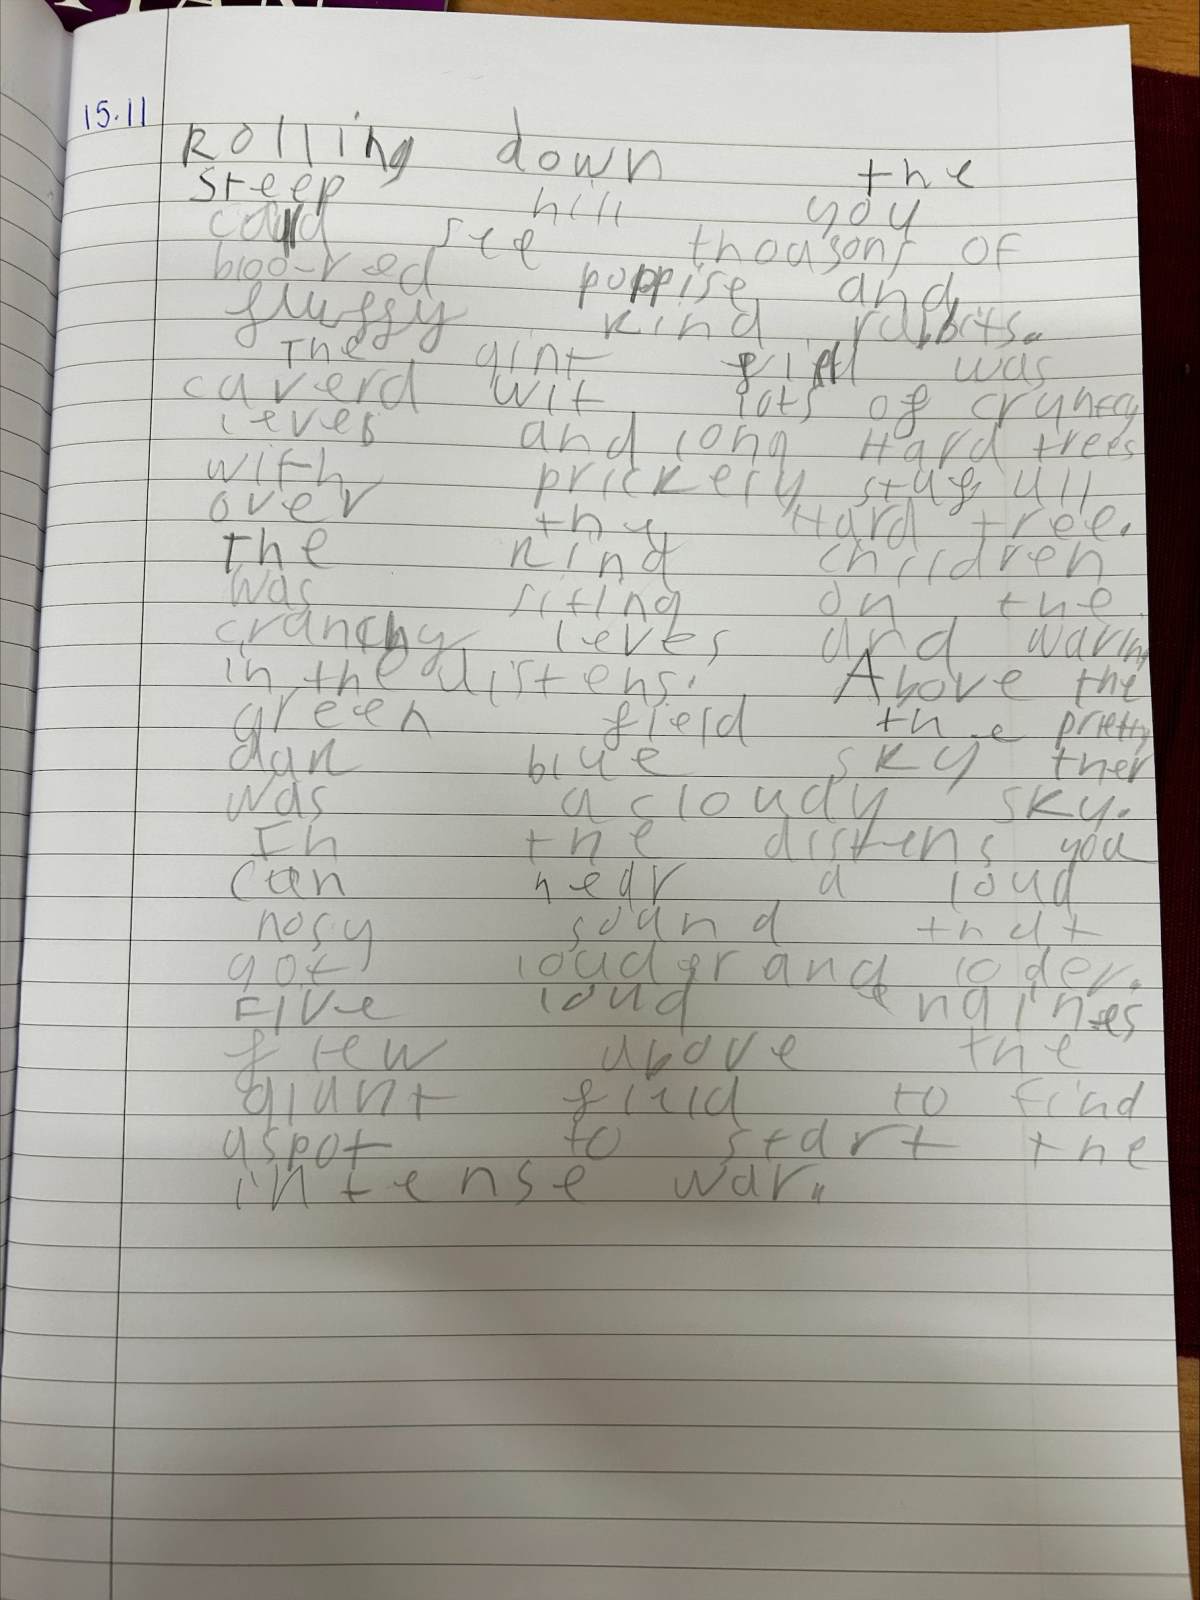 15.11
Rolling down the
steep hill you
could see thousons of
bloo-red poppise and
fluffy kind rabbits.
The gint field was
caverd wit lots of crunchy
leves and long Hard trees
with prickely stuf ull
over the Hard tree.
The kind children
was siting on the
cranchy leves and waring
in the distens. Above the
green field the pretty
dan blue sky ther
was a cloudy sky.
In the distens you
can hear a loud
nosy sound that
got louder and loder.
Five loud engines
flew above the
giant fluid to find
a spot to start the
intense war.